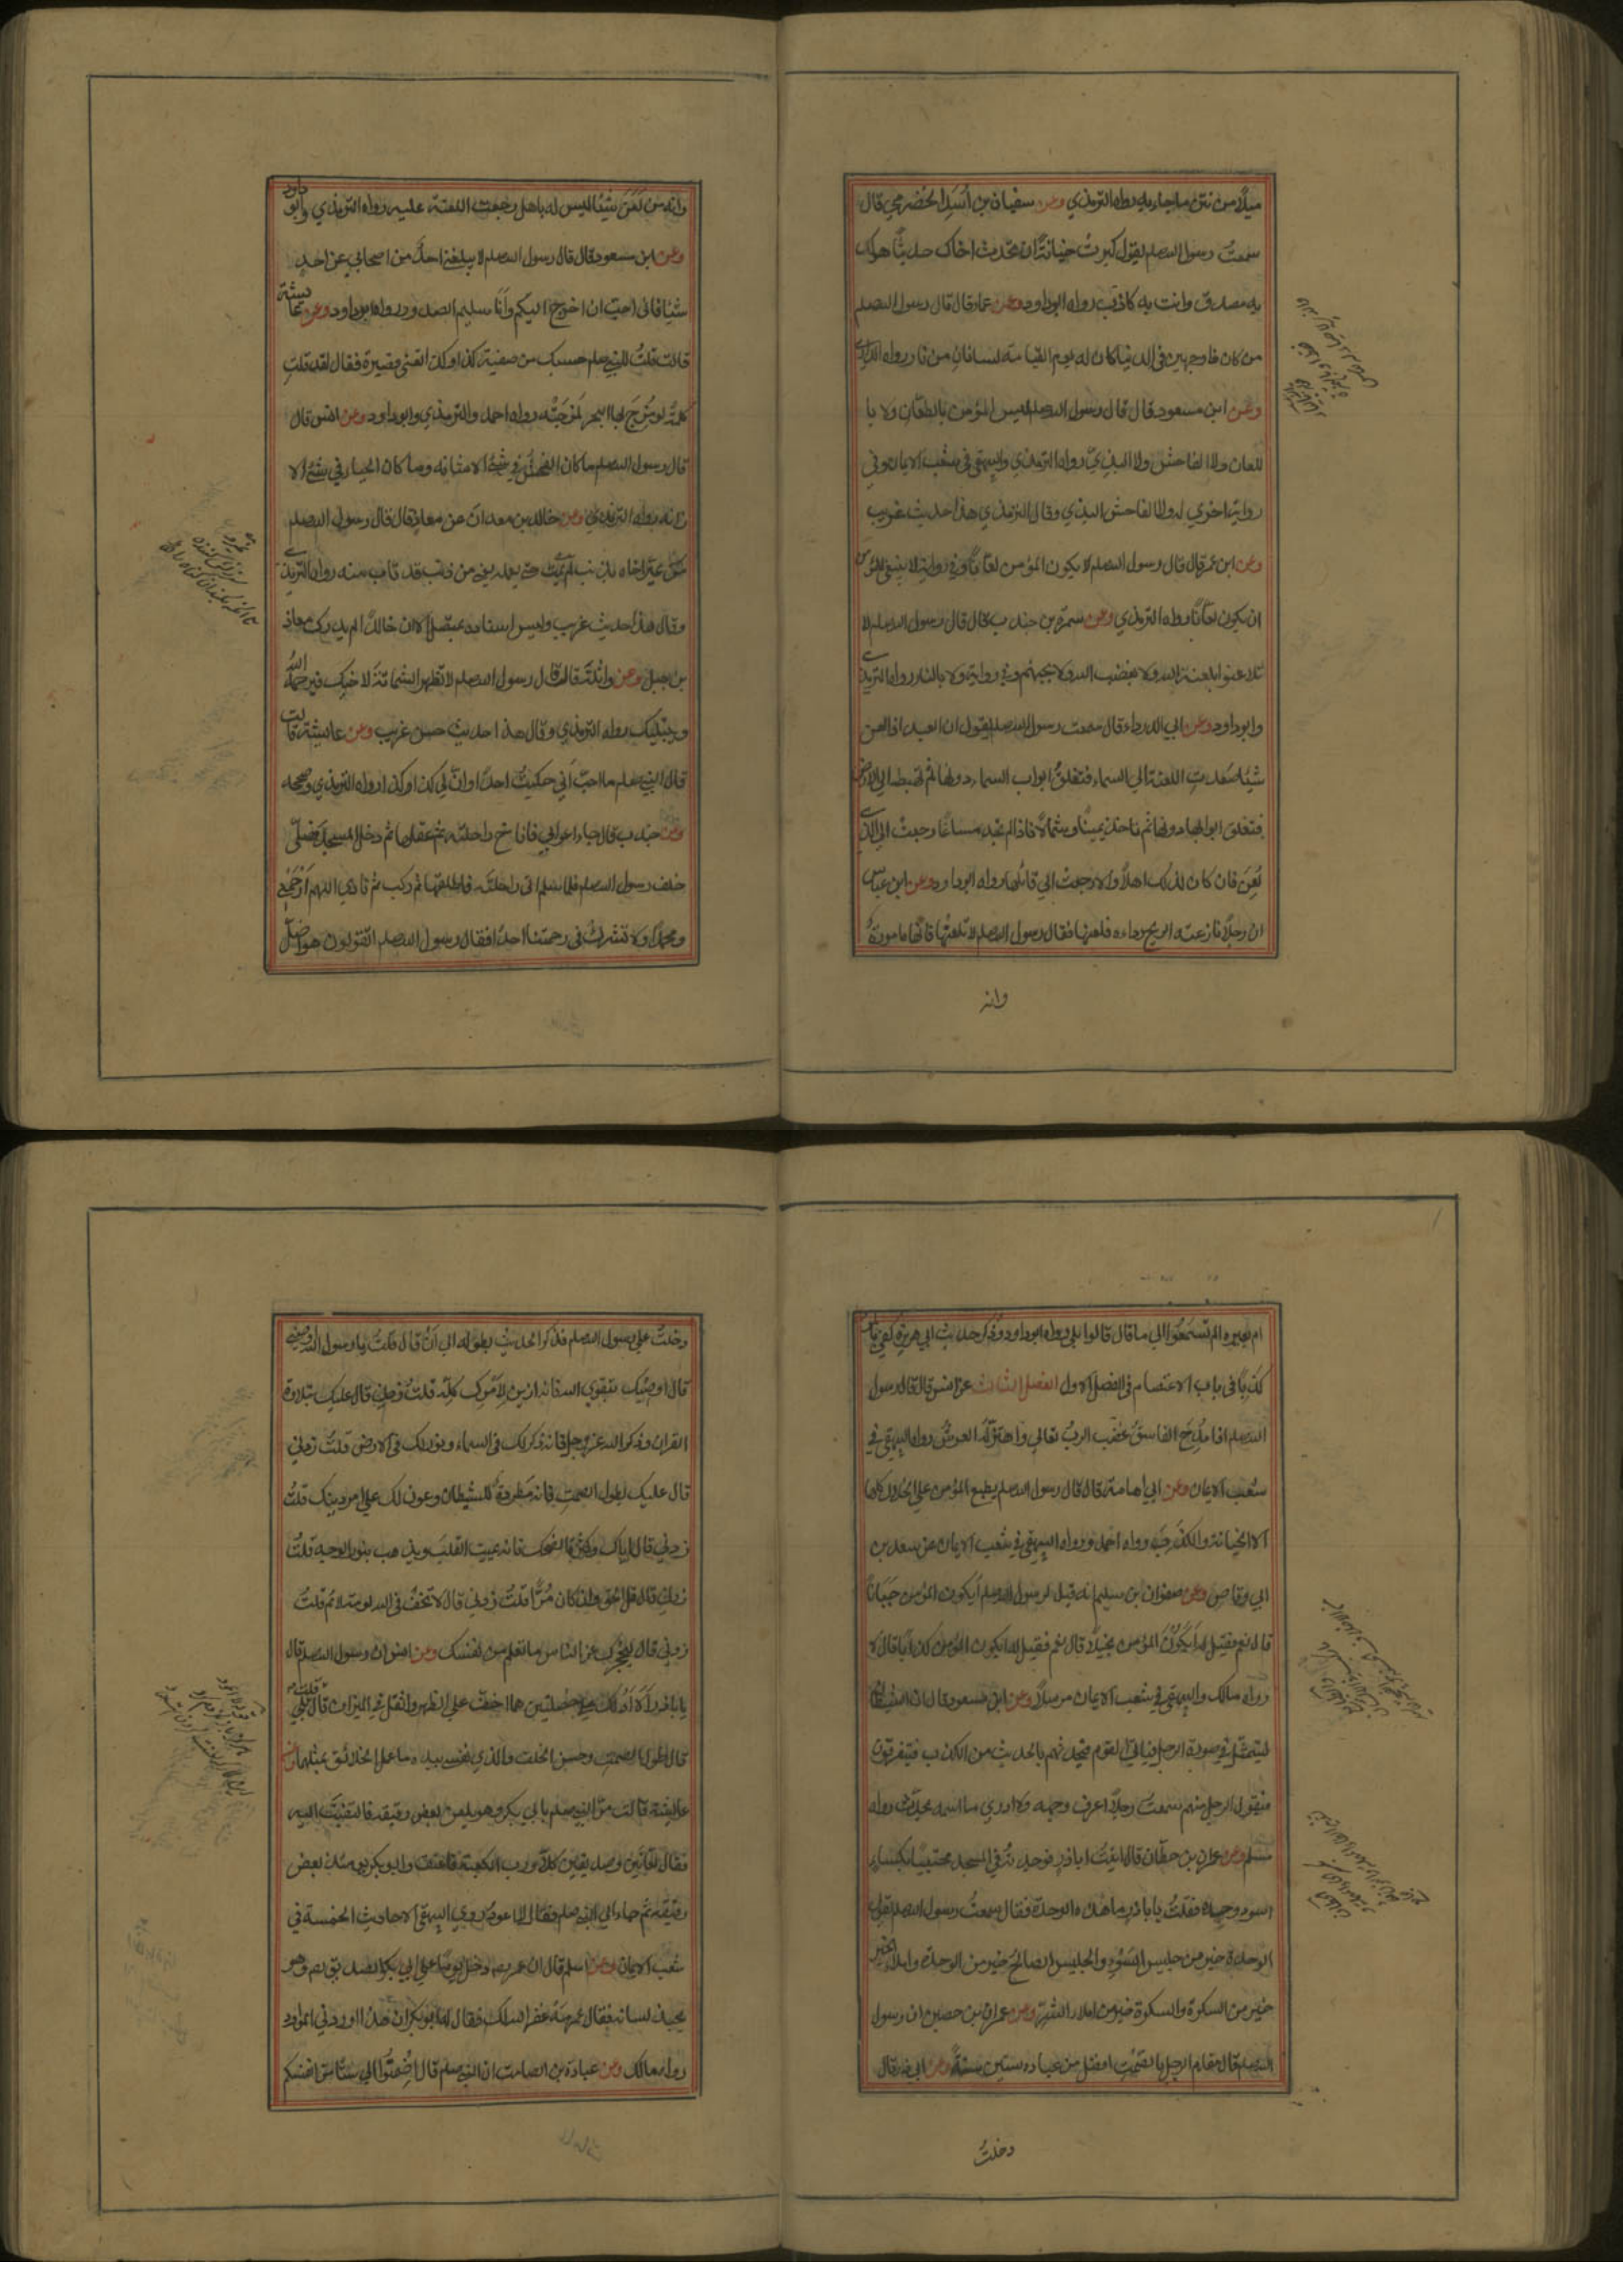 ميلا من نتن ما جاء به رواه الترمذي وعن سفيان بن اسيد الحضرمي قال
سمعت رسول الله صلعم يقول كبرت خيانة ان تحدث اخاك حديثا هو لك
به مصدق وانت به كاذب رواه ابوداود وعن عمار قال قال رسول الله صلعم
من كان ذا وجهين في الدنيا كان له يوم القيامة لسانان من نار رواه الدارمي
وعن ابن مسعود قال قال رسول الله صلعم ليس المؤمن بالطعان ولا با
للعان ولا الفاحش ولا البذي رواه الترمذي والبيهقي في شعب الايمان وفي
رواية اخري له ولا الفاحش البذي وقال الترمذي هذا حديث غريب
وعن ابن عمر قال قال رسول الله صلعم لا يكون المؤمن لعانا وفي رواية لا ينبغي للمؤمن
ان يكون لعانا رواه الترمذي وعن سمرة بن جندب قال قال رسول الله صلعم لا
تلاعنوا بلعنة الله ولا بغضب الله ولا بجهنم وفي رواية ولا بالنار رواه الترمذي
وابوداود وعن ابي الدرداء قال سمعت رسول الله صلعم يقول ان العبد اذا لعن
شيئا صعدت اللعنة الي السماء فتغلق ابواب السماء دونها ثم تهبط الي الارض
فتغلق ابوابها دونها ثم تاخذ يمينا وشمالا فاذا لم تجد مساغا رجعت الي الذي
لعن فان كان لذلك اهلا والا رجعت الي قائلها رواه ابوداود وعن ابن عباس
ان رجلا نازعته الريح رداءه فلعنها فقال رسول الله صلعم لا تلعنها فانها مامورة
وانه
وانه من لعن شيئا ليس له باهل رجعت اللعنة عليه رواه الترمذي وابو داود
وعن ابن مسعود قال قال رسول الله صلعم لا يبلغني احد من اصحابي عن احد
شيئا فاني احب ان اخرج اليكم وانا سليم الصدر رواه ابوداود وعن عايشة
قالت قلت للنبي صلعم حسبك من صفية كذا وكذا تعني قصيرة فقال لقد قلت
كلمة لو مزج بها البحر لمزجته رواه احمد والترمذي وابوداود وعن انس قال
قال رسول الله صلعم ما كان الفحش في شيء الا شانه وما كان الحياء في شيء الا
زانه رواه الترمذي وعن خالد بن معدان عن معاذ قال قال رسول الله صلعم
من عير اخاه بذنب لم يمت حتي يعمله يعني من ذنب قد تاب منه رواه الترمذي
وقال هذا حديث غريب وليس اسناده بمتصل لان خالدا لم يدرك معاذ
بن جبل وعن واثلة قال قال رسول الله صلعم لا تظهر الشماتة لاخيك فيرحمه الله
ويبتليك رواه الترمذي وقال هذا حديث حسن غريب وعن عايشة قالت
قال النبي صلعم ما احب اني حكيت احدا وان لي كذا وكذا رواه الترمذي وصححه
وعن جندب قال جاء اعرابي فاناخ راحلته ثم عقلها ثم دخل المسجد فصلي
خلف رسول الله صلعم فلما سلم اتي راحلته فاطلقها ثم ركب ثم نادي اللهم ارحمني
ومحمدا ولا تشرك في رحمتنا احدا فقال رسول الله صلعم اتقولون هو اضل
ام بعيره الم تسمعوا الي ما قال قالوا بلي رواه ابوداود وذكر حديث ابي هريرة كفي بالمرء
كذبا في باب الاعتصام في الفصل الاول الفصل الثالث عن انس قال قال رسول
الله صلعم اذا مدح الفاسق غضب الرب تعالي واهتز له العرش رواه البيهقي في
شعب الايمان وعن ابي امامة قال قال رسول الله صلعم يطبع المؤمن علي الخلال كلها
الا الخيانة والكذب رواه احمد ورواه البيهقي في شعب الايمان عن سعد بن
ابي وقاص وعن صفوان بن سليم انه قيل لرسول الله صلعم ايكون المؤمن جبانا
قال نعم فقيل له ايكون المؤمن بخيلا قال نعم فقيل له ايكون المؤمن كذابا قال لا
رواه مالك والبيهقي في شعب الايمان مرسلا وعن ابن مسعود قال ان الشيطان
ليتمثل في صورة الرجل فياتي القوم فيحدثهم بالحديث من الكذب فيتفرقون
فيقول الرجل منهم سمعت رجلا اعرف وجهه ولا ادري ما اسمه يحدث رواه
مسلم وعن عمران بن حطان قال اتيت اباذر فوجدته في المسجد محتبيا بكساء
اسود وحده فقلت يا باذر ما هذه الوحدة فقال سمعت رسول الله صلعم يقول
الوحدة خير من جليس السوء والجليس الصالح خير من الوحدة واملاء الخير
خير من السكوة والسكوة خير من املاء الشر وعن عمران بن حصين ان رسول
الله صلعم قال مقام الرجل بالصمت افضل من عبادة ستين سنة وعن ابي ذر قال
دخلت
دخلت علي رسول الله صلعم فذكر الحديث بطوله الي ان قال قلت يا رسول الله اوصني
قال اوصيك بتقوي الله فانه ازين لامرك كله قلت زدني قال عليك بتلاوة
القران وذكر الله عز وجل فانه ذكر لك في السماء ونور لك في الارض قلت زدني
قال عليك بطول الصمت فانه مطردة للشيطان وعون لك علي امر دينك قلت
زدني قال اياك وكثرة الضحك فانه يميت القلب ويذهب بنور الوجه قلت
زدني قال قل الحق وان كان مرا قلت زدني قال لا تخف في الله لومة لائم قلت
زدني قال ليحجزك عن الناس ما تعلم من نفسك وعن انس ان رسول الله صلعم قال
يا باذر الا ادلك علي خصلتين هما اخف علي الظهر واثقل في الميزان قال قلت بلي
قال طول الصمت وحسن الخلق والذي نفسي بيده ما عمل الخلائق بمثلهما وعن
عايشة قالت مر النبي صلعم بابي بكر وهو يلعن بعض رقيقه فالتفت اليه
فقال لعانين وصديقين كلا ورب الكعبة فاعتق ابوبكر يومئذ بعض
رقيقه ثم جاء الي النبي صلعم فقال لا اعود روي البيهقي الاحاديث الخمسة في
شعب الايمان وعن اسلم قال ان عمر رضه دخل يوما علي ابي بكر الصديق رضه وهو
يجبذ لسانه فقال عمر مه غفر الله لك فقال له ابوبكر ان هذا اوردني الموارد
رواه مالك وعن عبادة بن الصامت ان النبي صلعم قال اضمنوا لي ستا من انفسكم